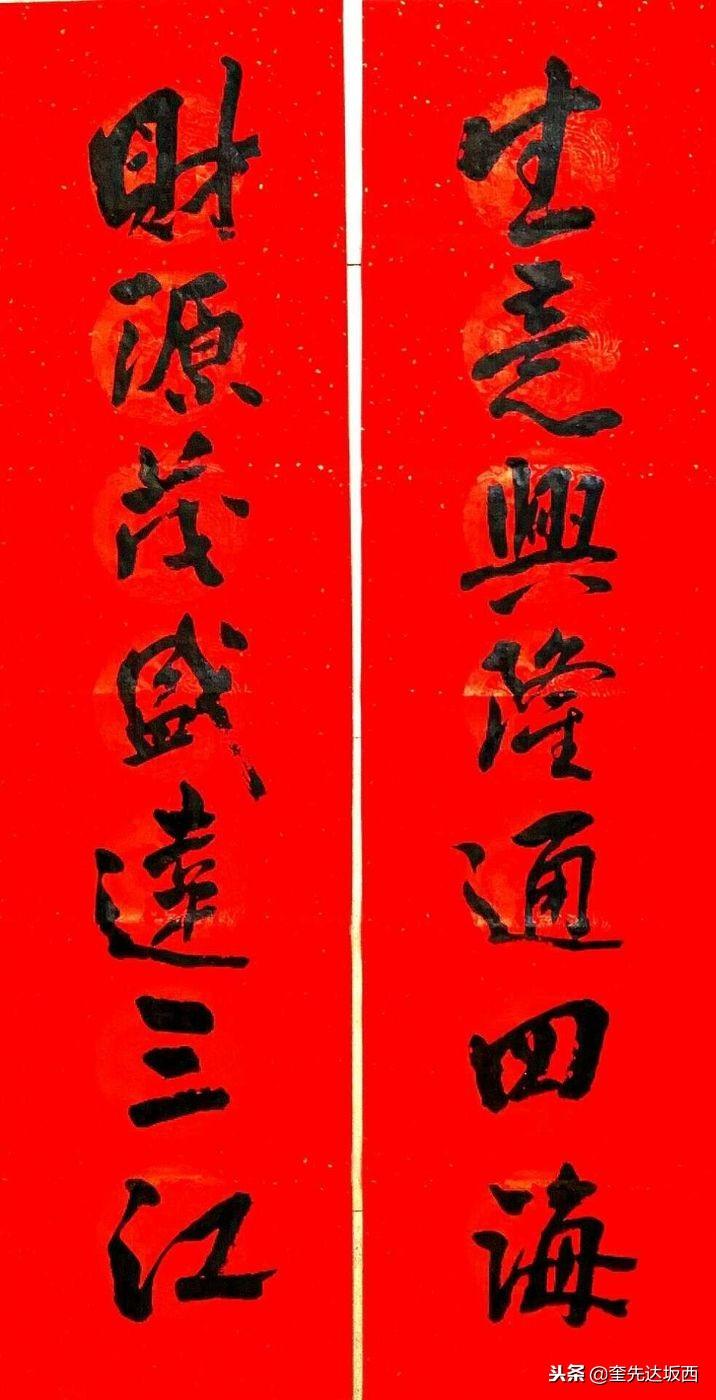 生意興隆通四海
財源茂盛遠三江
头条 @奎先达坂西